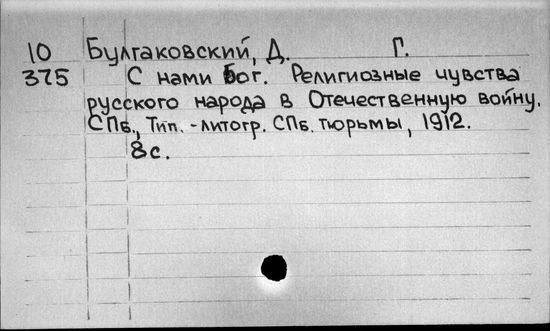 10 Булгаковский, Д. Г.
375 С нами Бог. Религиозные чувства
русского народа в Отечественную войну.
СПб., Тип.-литогр. СПб. тюрьмы, 1912.
8с.